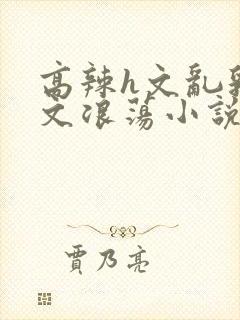 高辣h文亂
文浪蕩小説
賈乃亮